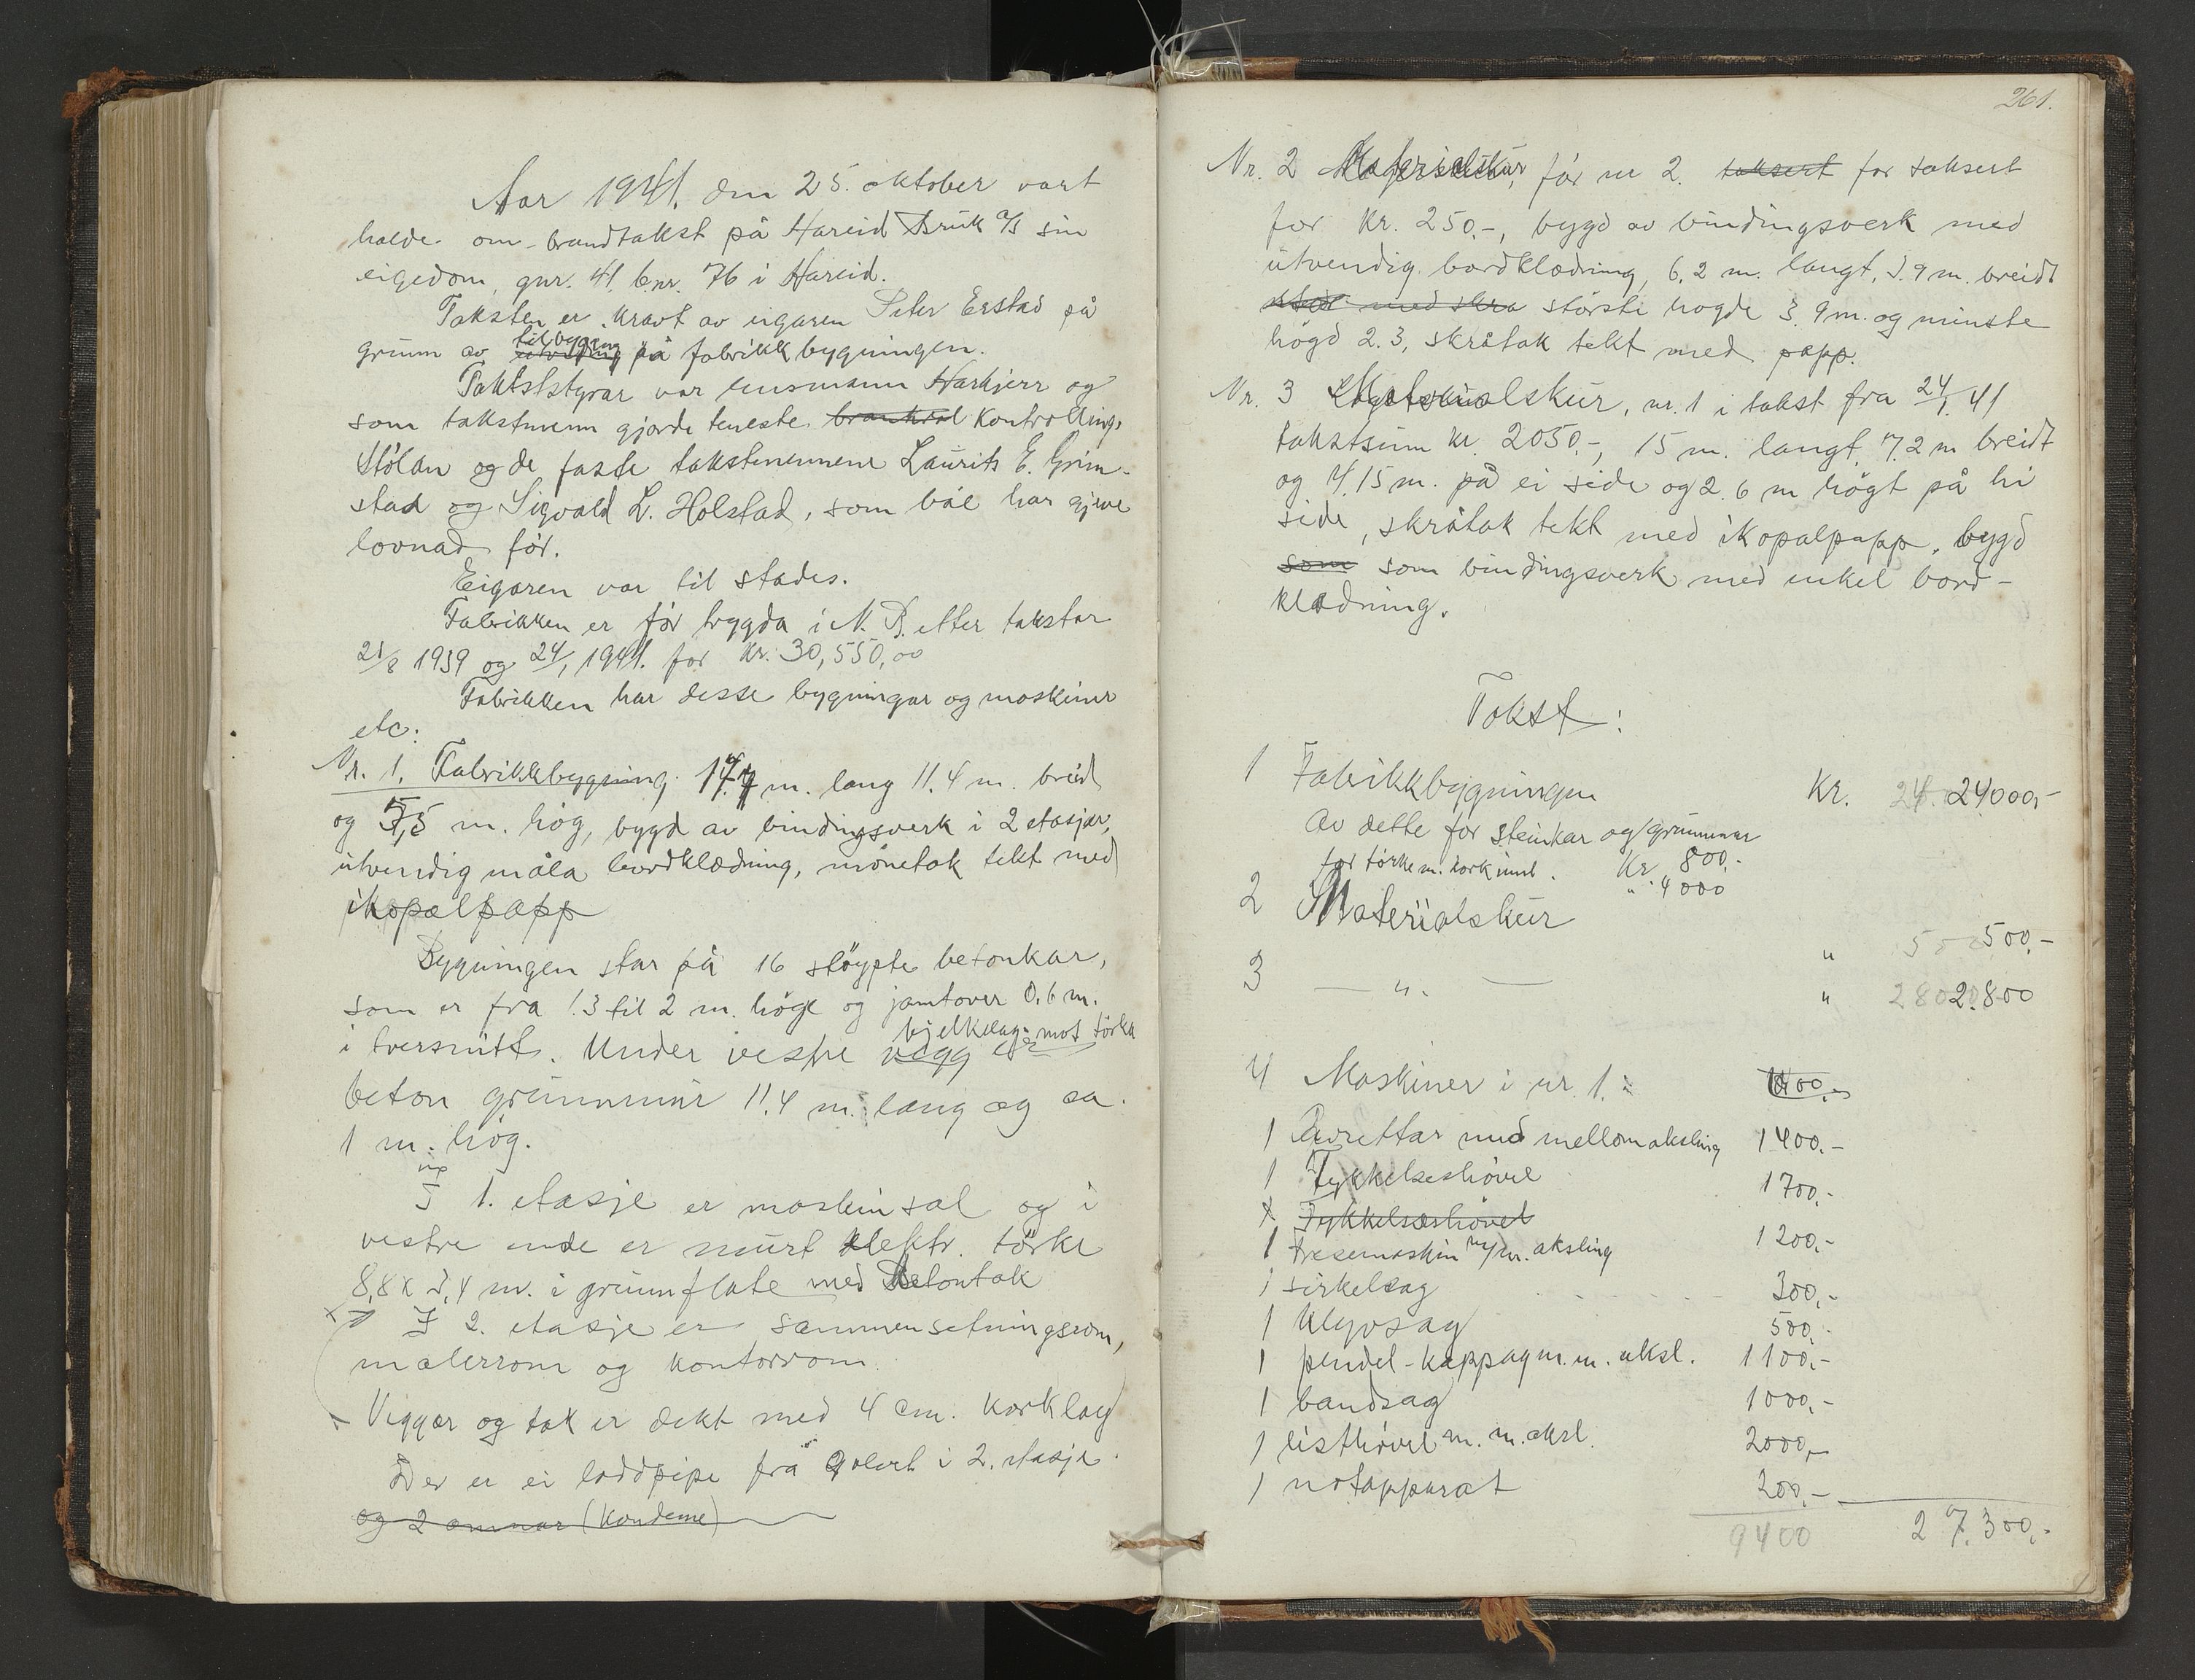 Aar 1941, den 25. oktober vart
halde om-brandtakst på Hareid Bruk A/S sin
eigedom, gnr. 41, b.nr. 76 i Hareid.
Taksten er kravt av eigaren Peter Erstad på
grunn av utviding tilbygging på fabrikkbygningen.
Takststyrar var lensmann Harkjerr og
som takstmenn gjorde teneste brankrol kontrolling.
Stølan og de faste takstmennene Laurits E. Grim-
stad og Sigvald L. Holstad, som båe har gjeve
lovnad før.
Eigaren var til stades.
Fabrikken er før trygda i N. B. etter takstar
21/8 1939 og 24/1 1941. for kr. 30,550,00
Fabrikken har desse bygningar og maskiner
etc:
Nr. 1. Fabrikkbygning. m. lang 11.4 m. breid
og 5,5 m. høg, bygd av bindingsverk i 2 etasjar,
utvendig måla bordklædning, mønetak tekt med
ikopalpapp
Bygningen star på 16 støypte betonkar,
som er fra 1.3 til 2 m. høge og jamtover 0.6 m.
i tversnitt. Under vestre vegg bjelkelag mot tørka er
beton grunnmur 11.4 m. lang og ca.
1 m. høg.
I 1. etasje er maskinsal og i
vestre ende er murt elektr. tørke
8,8 x 2,4 m. i grunnflate med betontak
I 2. etasje er sammensetningsrom,
malerrom og kontorrom.
Veggar og tak er dekt med 4 cm. korklag
Der er ei loddpipe frå golvet i 2. etasje
og 2 omnar (kondemne)
261.
Nr. 2 Materialskur, før nr 2. taksert for taksert
for kr. 250,-, bygd av bindingsverk med
utvendig bordklædning, 6,2 m. langt, 3.9 m. breidt
med skra største høgde 3.9 m. og minste
høgd 2.3, skråtak tekt med papp.
Nr. 3 Materialskur, nr. 1 i takst fra 24/1 41
takstsum kr. 2050.-, 15 m. langt, 7.2 m breidt
og 4.15 m. på ei side og 2.6 m høgt på hi
side, skråtak tekt med ikopalpapp, bygd
som som bindingsverk med enkel bord-
klædning.
Takst:
1 Fabrikkbygningen Kr. 24.000,-
Av dette for steinkar og grunnmur
Kr. 800.-
for tørke m. korkinnl. " 4000
2 Materialskur " 500,-
3 — " — " 2.800
4 Maskiner i nr. 1.: 1400.-
1 Avrettar med mellomaksling 1400.-
1 Tykkelseshøvel 1700,-
1 Tykkelseshøvel
1 Fresemaskin m/m. aksling 1200.-
1 sirkelsag 300,-
1 Klyvsag 500,-
1 pendel-kappsag m. m. aksl. 1100,-
1 bandsag 1000,-
1 listhøvel m. m. aksl. 2000,-
1 notapparat 200,-
9400 27.300,-